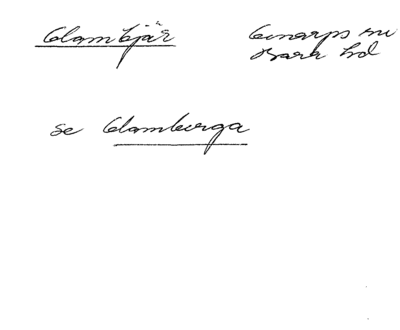 Glambjär Genarps sn
Bara hd
se Glamberga